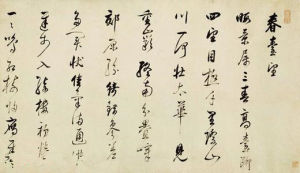 春臺望
暇景屬三春高臺聊
四望目極千里際山
川一何壯太華見
重巖終南分疊嶂
郊原紛綺錯參差
多異狀佳氣滿通溝
遲步入綺樓初鶯
一一鳴紅樹歸鴈雙